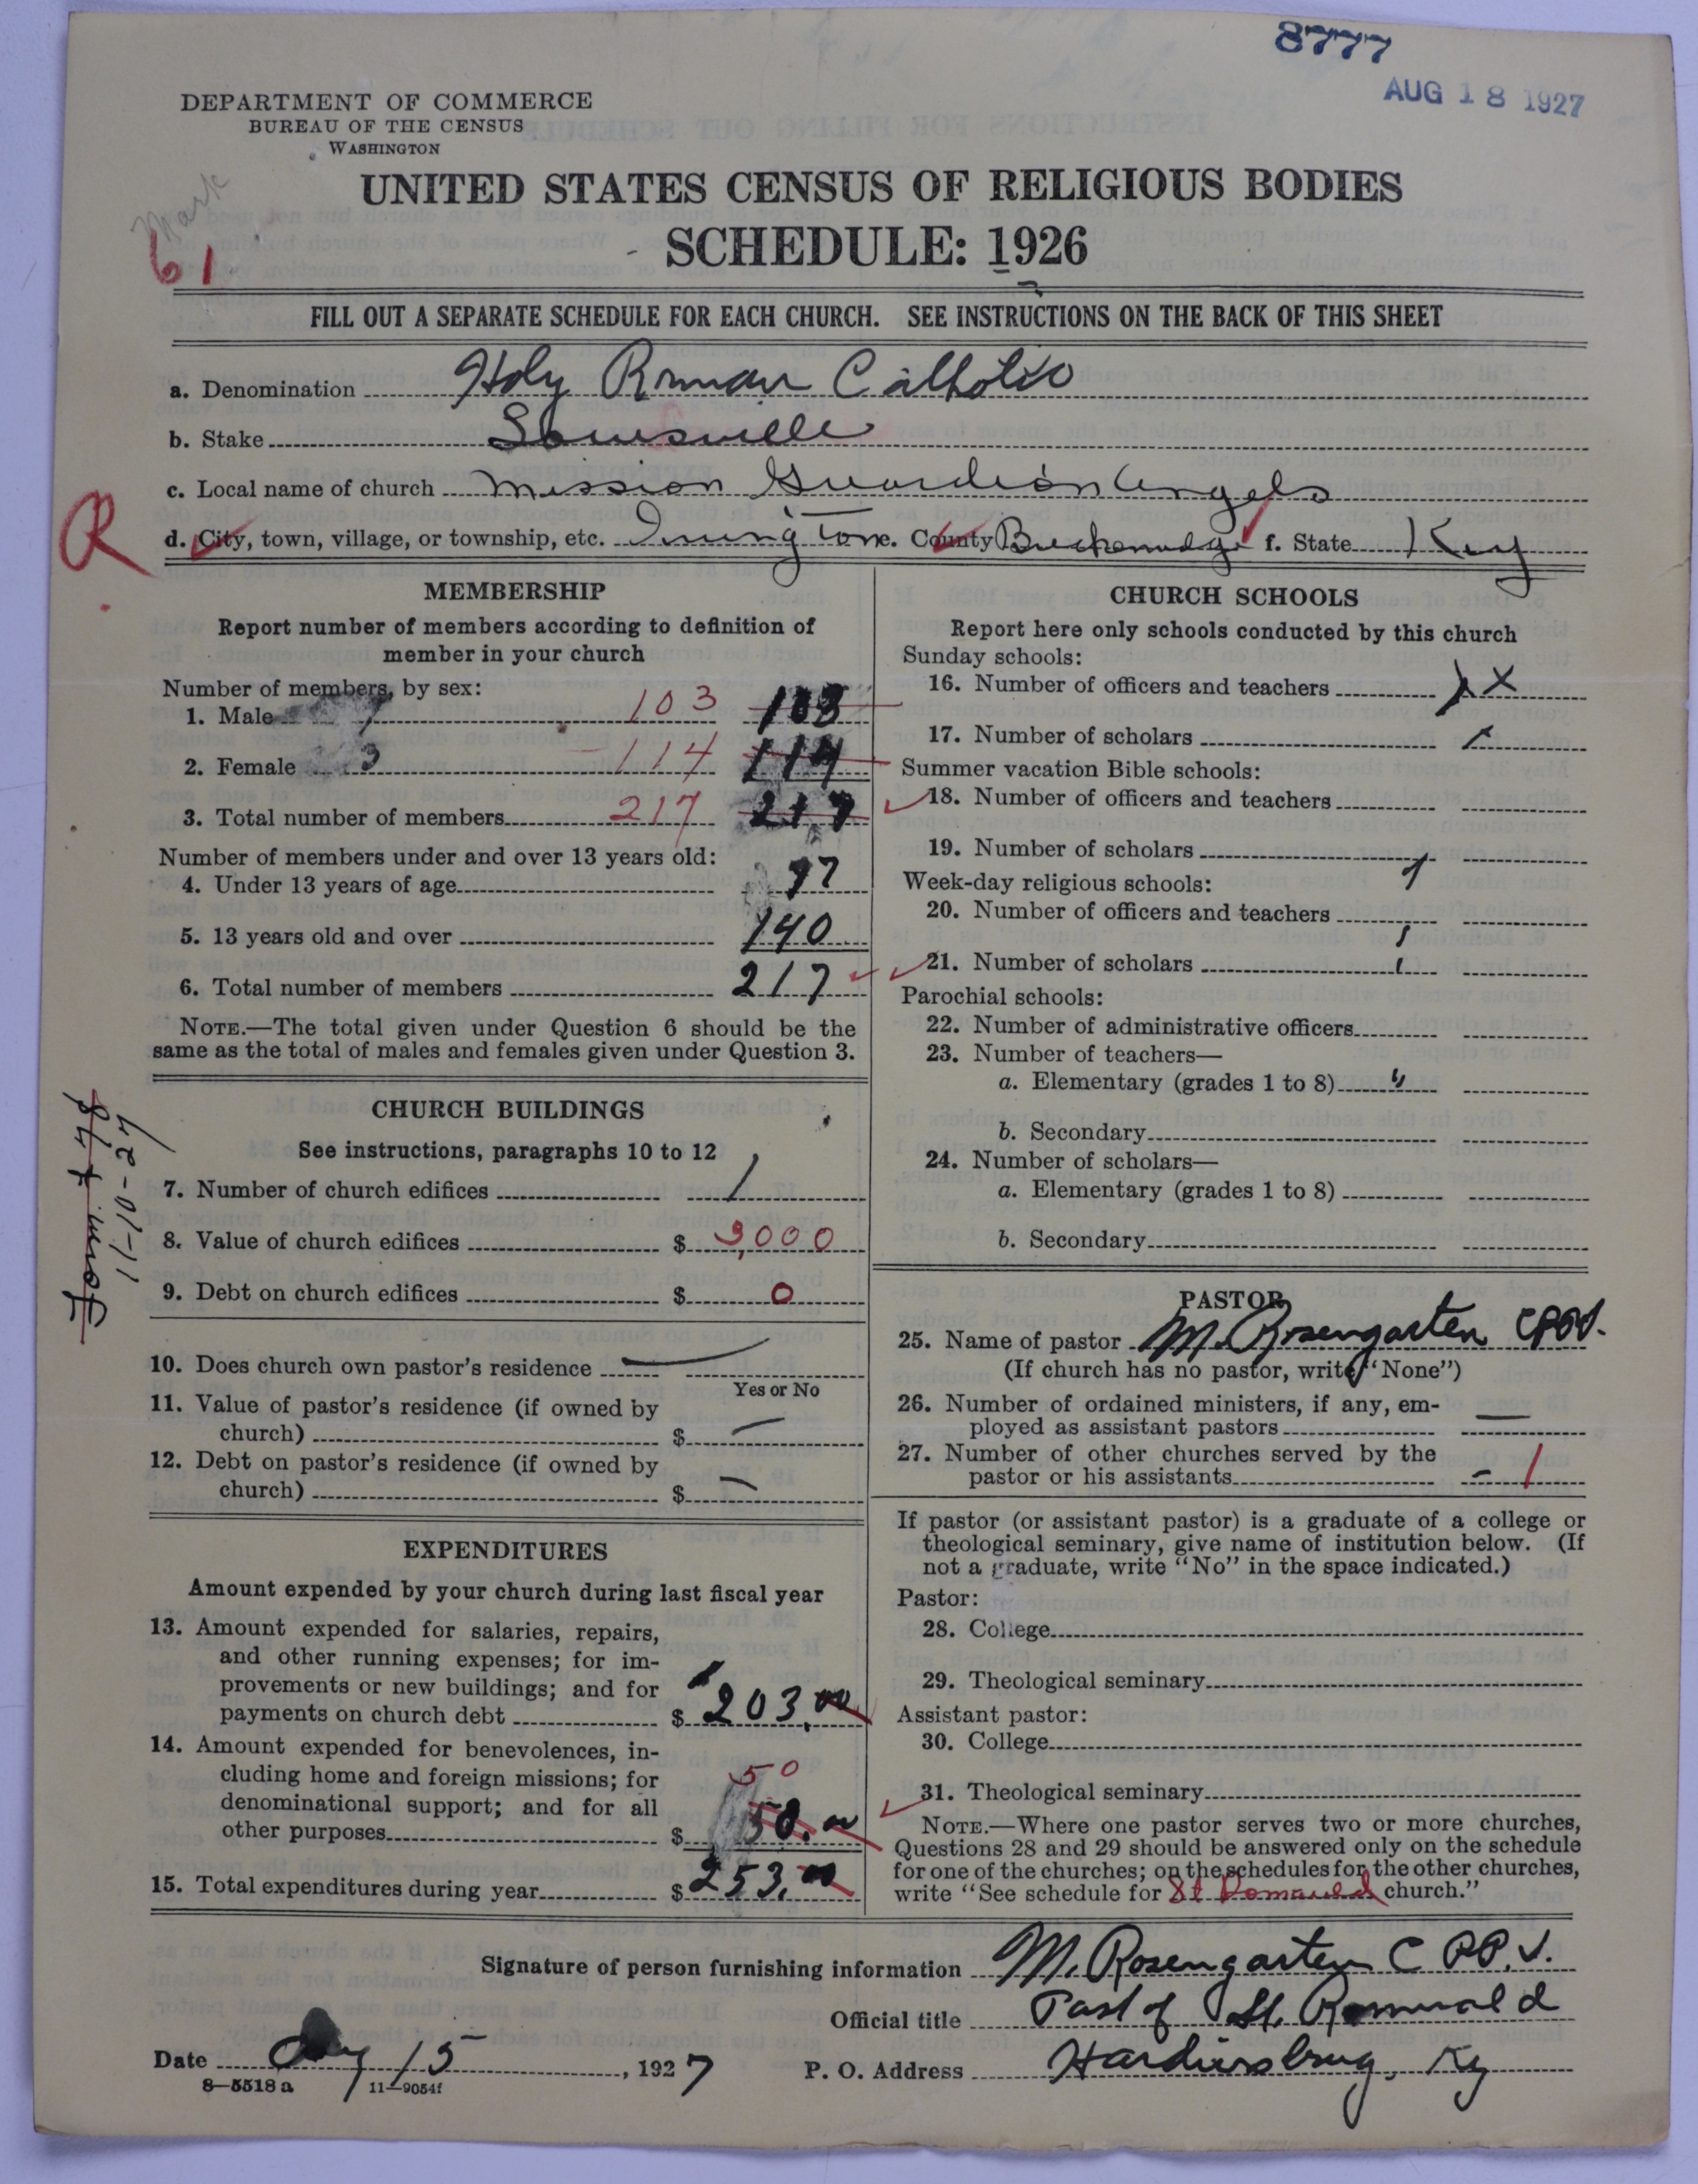 8777
AUG 18 1927
DEPARTMENT OF COMMERCE
BUREAU OF THE CENSUS
WASHINGTON
Mark
61
UNITED STATES CENSUS OF RELIGIOUS BODIES
SCHEDULE: 1926
FILL OUT A SEPARATE SCHEDULE FOR EACH CHURCH. SEE INSTRUCTIONS ON THE BACK OF THIS SHEET
a. Denomination Holy Roman Catholic
b. Stake Louisville
c. Local name of church Mission Guardian Angels
R
d. City, town, village, or township, etc. Irvington e. County Breckenridge f. State Ky
MEMBERSHIP
Report number of members according to definition of
member in your church
Number of members, by sex:
1. Male 103 103
2. Female 114 114
3. Total number of members 217 217
Number of members under and over 13 years old:
4. Under 13 years of age
5. 13 years old and over 140
6. Total number of members 217
NOTE.—The total given under Question 6 should be the
same as the total of males and females given under Question 3.
CHURCH BUILDINGS
See instructions, paragraphs 10 to 12
7. Number of church edifices 1
8. Value of church edifices $ 3,000
9. Debt on church edifices $ 0
10. Does church own pastor's residence —
Yes or No
11. Value of pastor's residence (if owned by
church) $ —
12. Debt on pastor's residence (if owned by
church) $ —
Form + 78
11-10-27
EXPENDITURES
Amount expended by your church during last fiscal year
13. Amount expended for salaries, repairs,
and other running expenses; for im-
provements or new buildings; and for
payments on church debt $ 203.00
14. Amount expended for benevolences, in-
cluding home and foreign missions; for 50
denominational support; and for all
other purposes $ 50.00
15. Total expenditures during year $ 253.00
CHURCH SCHOOLS
Report here only schools conducted by this church
Sunday schools:
16. Number of officers and teachers X
17. Number of scholars
Summer vacation Bible schools:
18. Number of officers and teachers
19. Number of scholars
Week-day religious schools:
20. Number of officers and teachers
21. Number of scholars
Parochial schools:
22. Number of administrative officers
23. Number of teachers—
a. Elementary (grades 1 to 8)
b. Secondary
24. Number of scholars—
a. Elementary (grades 1 to 8)
b. Secondary
PASTOR
25. Name of pastor M. Rosengarten CPPS.
(If church has no pastor, write "None")
26. Number of ordained ministers, if any, em-
ployed as assistant pastors —
27. Number of other churches served by the
pastor or his assistants - 1
If pastor (or assistant pastor) is a graduate of a college or
theological seminary, give name of institution below. (If
not a graduate, write "No" in the space indicated.)
Pastor:
28. College
29. Theological seminary
Assistant pastor:
30. College
31. Theological seminary
NOTE.—Where one pastor serves two or more churches,
Questions 28 and 29 should be answered only on the schedule
for one of the churches; on the schedules for the other churches,
write "See schedule for St Romuald church."
Signature of person furnishing information M. Rosengarten C.PP.S.
Official title Past of St. Romuald
Date Aug 15, 1927
P. O. Address Hardinsburg, Ky
8—5518 a 11—9054f